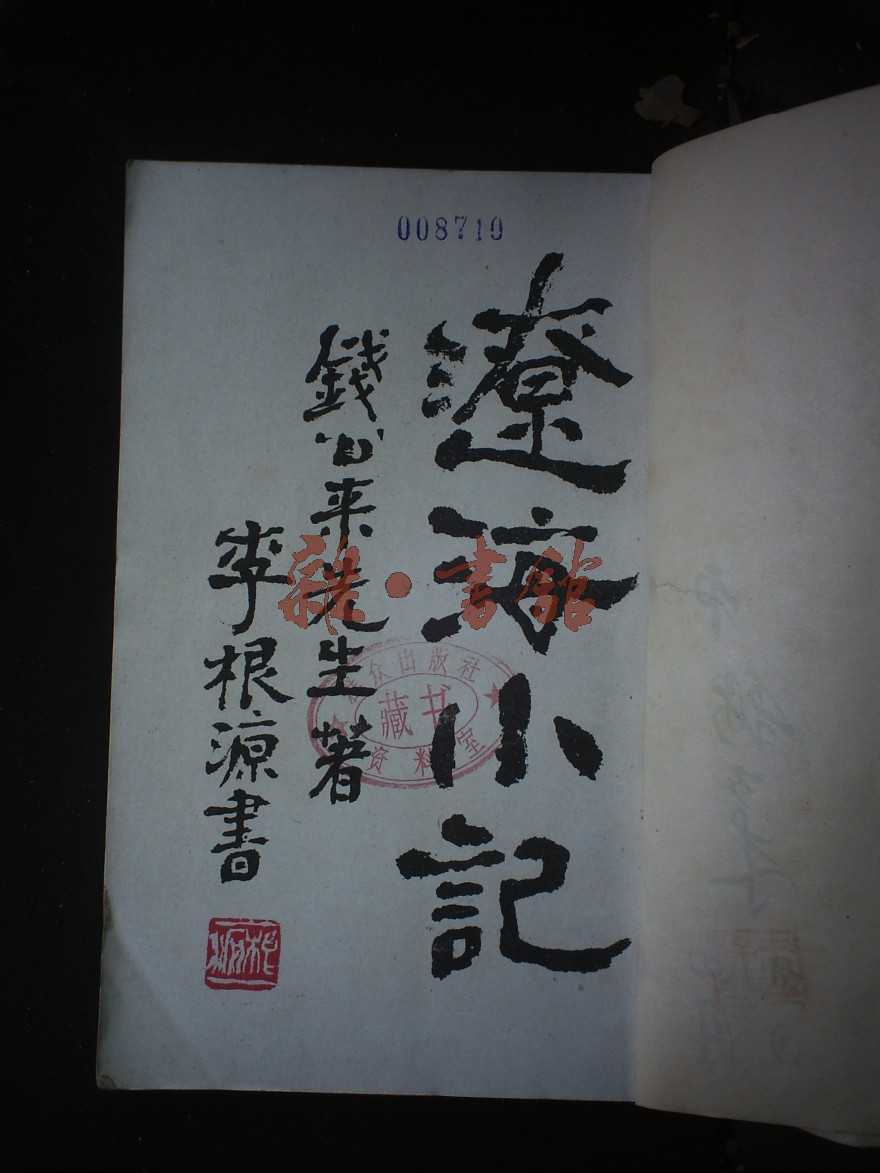 008710
遼海小記
錢公来先生著
李根源書
雜·書館
群众出版社
藏书
资料室
根源